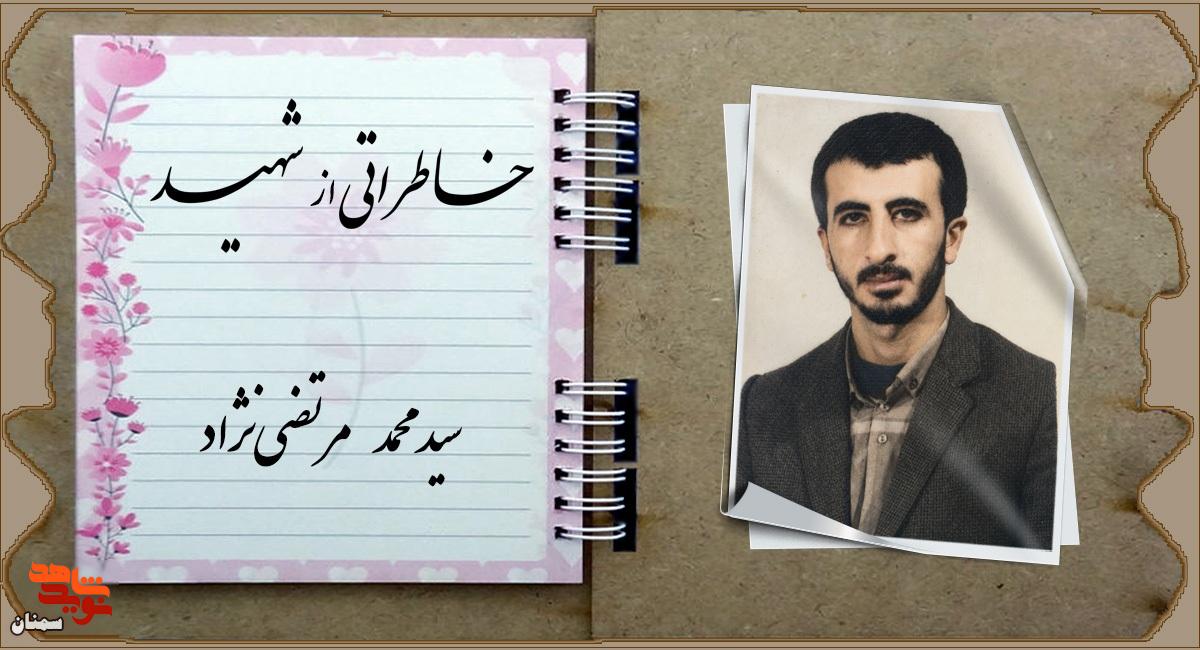 خاطراتی از شهید
سید محمد مرتضی‌نژاد
نوید شاهد
سمنان